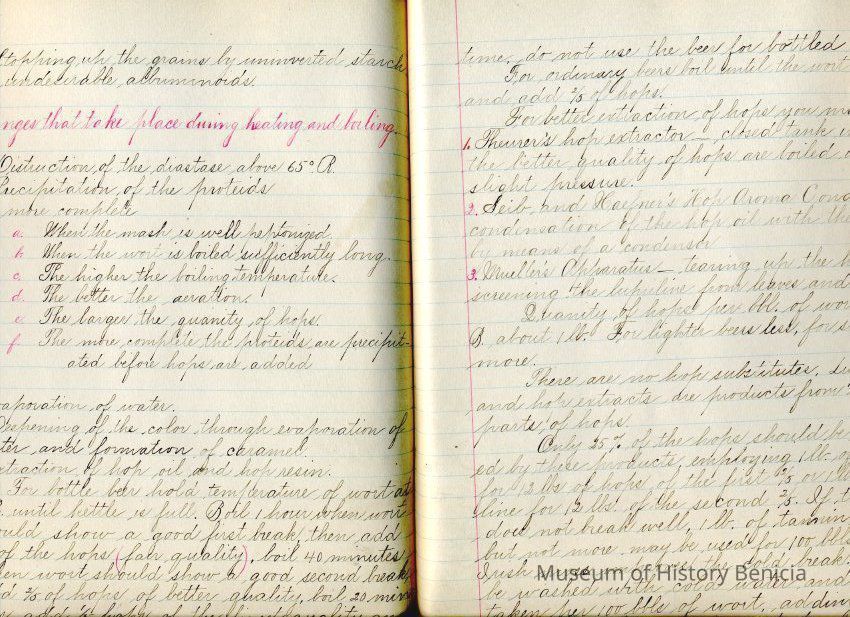 stopping up the grains by uninverted starch
undesirable albuminoids.
nges that take place during heating and boiling.
Distruction of the diastase above 65° R.
Precipitation of the proteids
more complete
a. When the mash is well peptonized.
b. When the wort is boiled sufficiently long.
c. The higher the boiling temperature.
d. The better the aeration.
e. The larger the quanity of hops.
f. The more complete the proteids are precipit-
ated before hops are added
vaporation of water.
Deepening of the color through evaporation of
ter and formation of caramel.
xtraction of hop oil and hop resin.
For bottle beer hold temperature of wort at
until kettle is full. Boil 1 hour when wort
ould show a good first break, then add
of the hops (fair quality), boil 40 minutes
en wort should show a good second break
d 2/5 of hops of better quality, boil 20 min
add 1/5 hops of the quality
time, do not use the beer for bottled
For ordinary beers boil until the wort
and add 2/5 of hops.
For better extraction of hops you m
1. Theurer's hop extractor - closed tank
the better quality of hops are boiled
slight pressure.
2. Seib, and Haefner's Hop Aroma Cond
condensation of the hop oil with the
by means of a condensor
3. Mueller's Apparatus — tearing up the
screening the lupuline from leaves and
Quanity of hops per bbl. of wor
B. about 1 lb. For lighter beers less, for s
more.
There are no hop substitutes. Lu
and hop extracts are products from
parts of hops.
Only 35% of the hops should be
ed by these products, employing 1 lb.
for 12 lbs of hops of the first 2/5 or 1 l
line for 12 lbs. of the second 2/5. If
does not break well, 1 lb. of tannin
but not more may be used for 100 bbls
Irish moss break.
be washed with cold water and
taken per 100 bbls of wort, addin
Museum of History Benicia